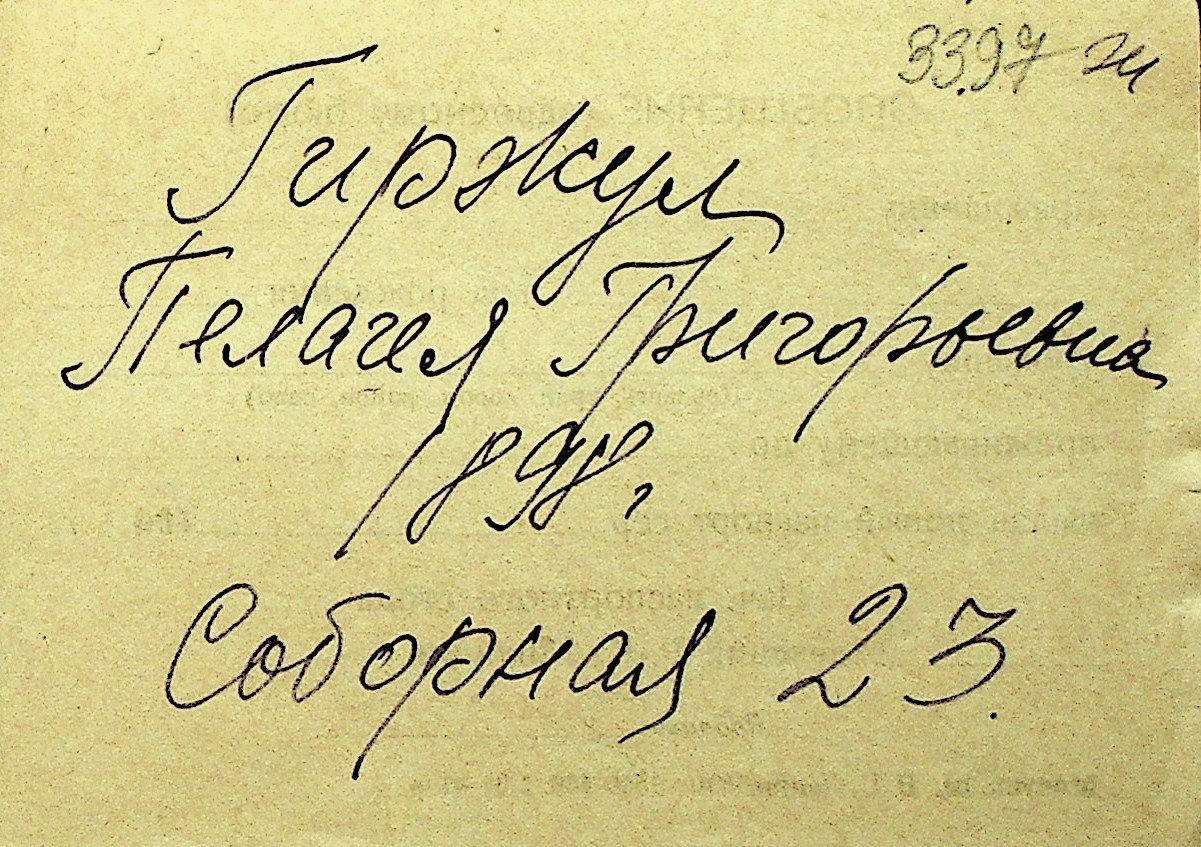 3397 ж
Гиржул
Пелагея Григорьевна
1898г
Соборная 23.